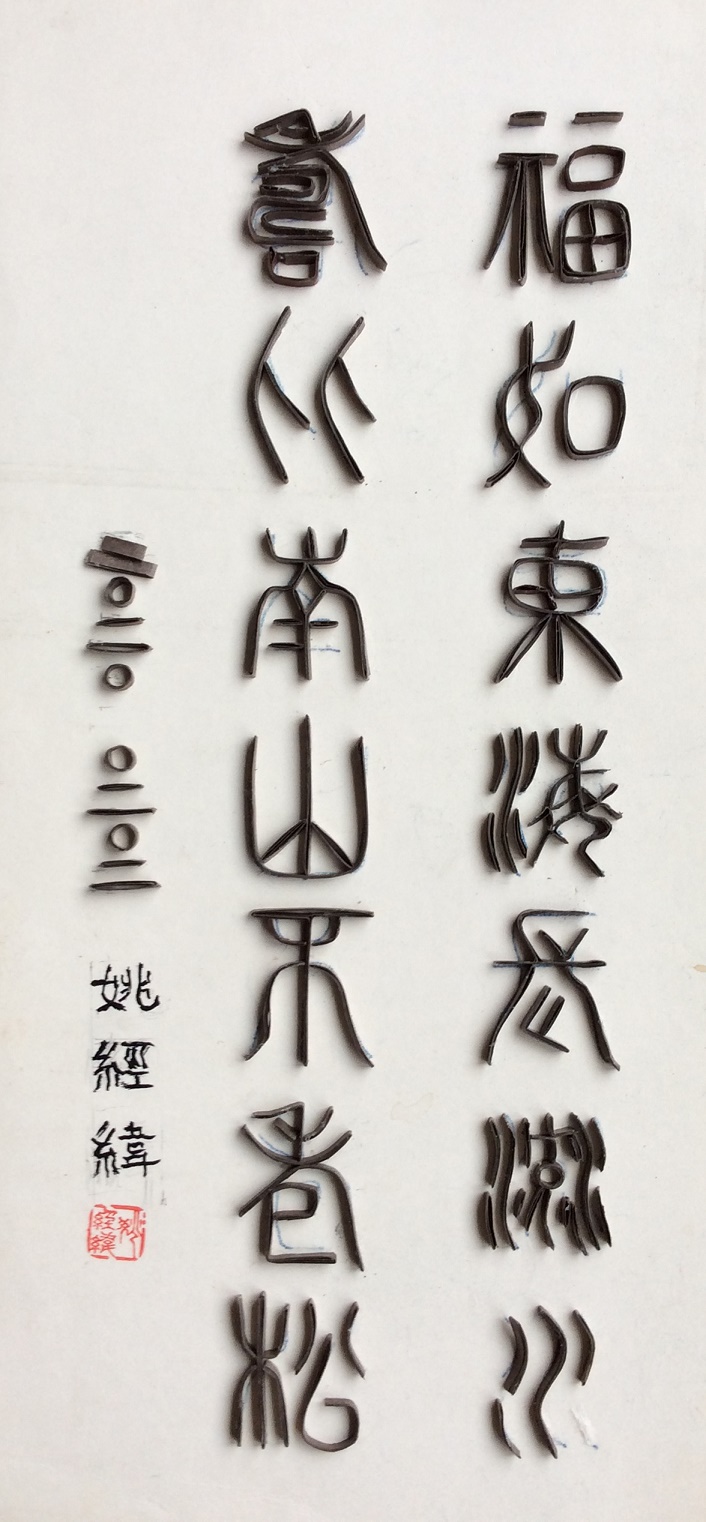 福如東海長流水
壽比南山不老松
姚經緯
姚經緯